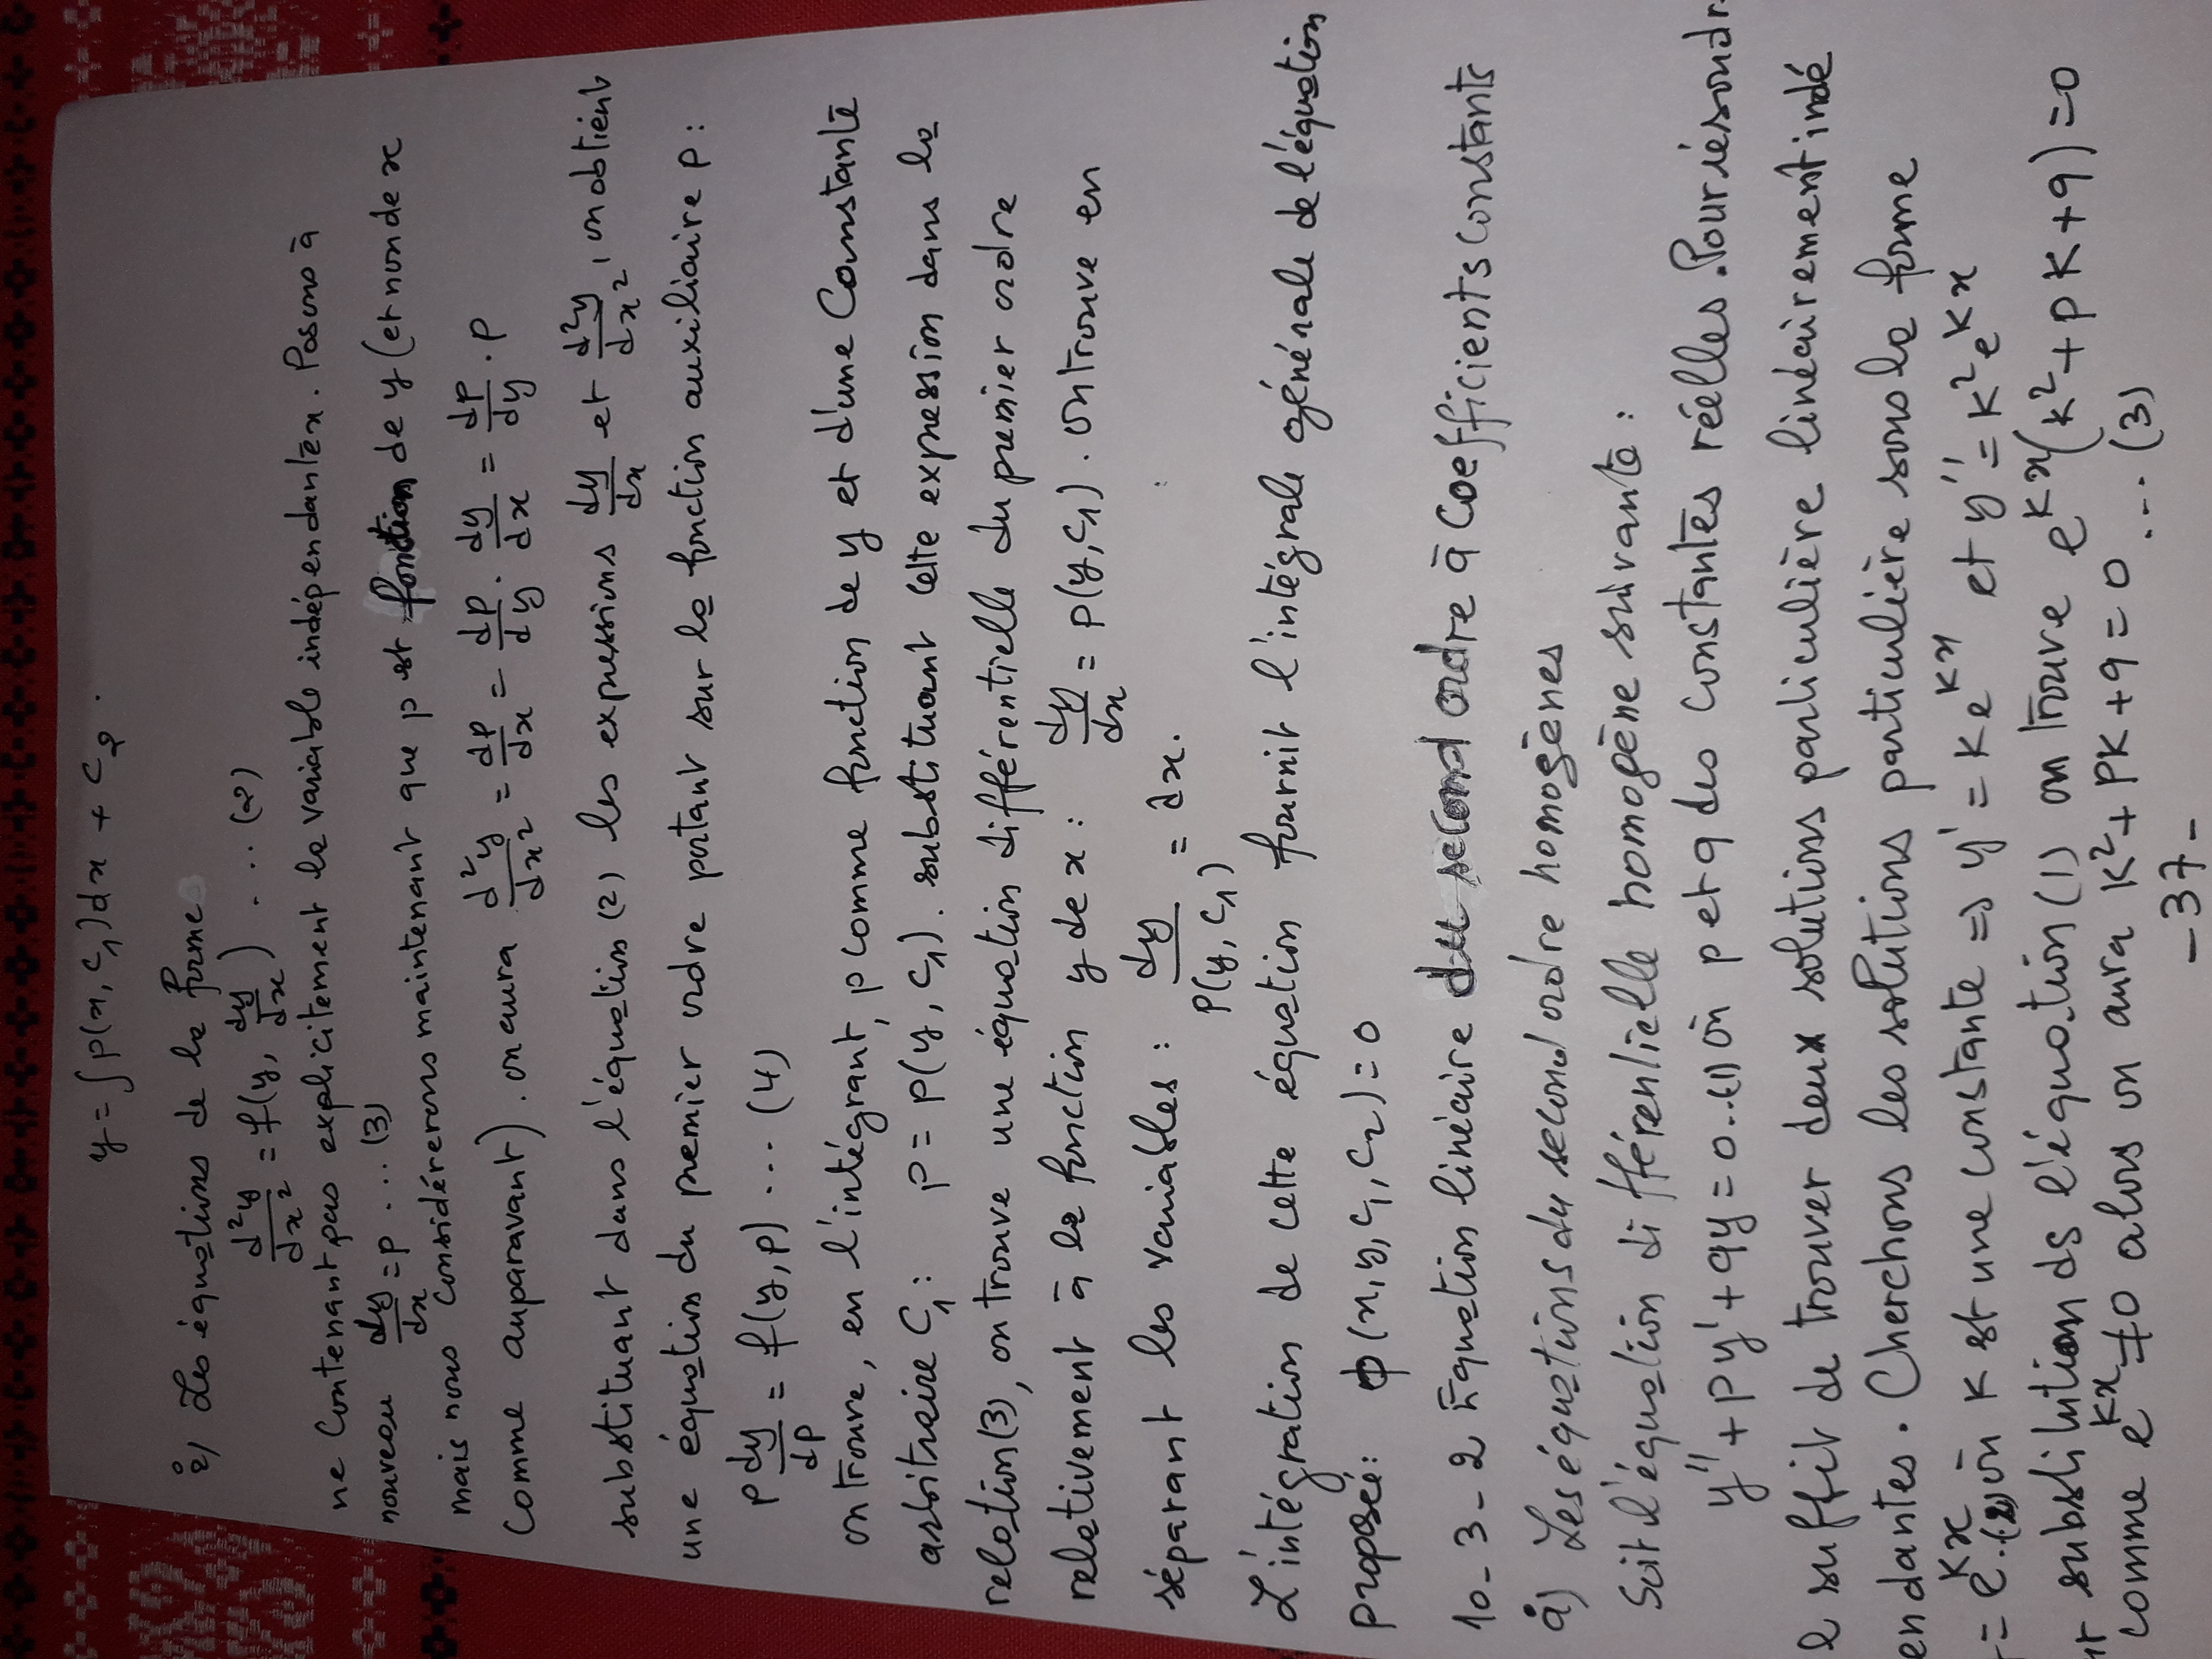 y = ∫p(x, c₁)dx + c₂.
2°) Les équations de la forme
d²y/dx² = f(y, dy/dx) ... (2)
ne contenant pas explicitement la variable indépendante x. Posons à
nouveau dy/dx = p ... (3)
mais nous considérerons maintenant que p est fonction de y (et non de x
comme auparavant). on aura d²y/dx² = dp/dx = dp/dy . dy/dx = dp/dy . p
substituant dans l'équation (2) les expressions dy/dx et d²y/dx², on obtient
une équation du premier ordre portant sur la fonction auxiliaire p :
p dy/dp = f(y, p) ... (4)
on trouve, en l'intégrant, p comme fonction de y et d'une Constante
arbitraire C₁ : p = p(y, c₁). substituant cette expression dans la
relation (3), on trouve une équation différentielle du premier ordre
relativement à la fonction y de x : dy/dx = p(y, c₁). on trouve en
séparant les variables : dy/p(y, c₁) = dx.
L'intégration de cette équation fournit l'intégrale générale de l'équation
proposée : ϕ(x, y, c₁, c₂) = 0
10-3-2 Equation linéaire du second ordre à Coefficients constants
a°) Les équations du second ordre homogènes
Soit l'équation différentielle homogène suivante :
y'' + py' + qy = 0...(1) où p et q des constantes réelles. Pour résoudr
l suffit de trouver deux solutions particulière linéairement indé
endantes. Cherchons les solutions particulière sous la forme
= e^kx..(2) où k est une constante => y' = k e^kx et y'' = k² e^kx
ur substitution ds l'équation (1) on trouve e^kx (k² + pk + q) = 0
comme e^kx ≠ 0 alors on aura k² + pk + q = 0 ... (3)
- 37 -